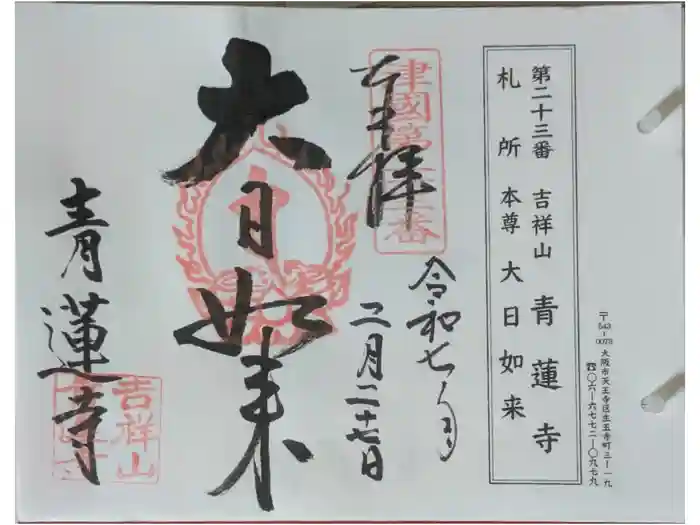 第二十三番 吉祥山 青蓮寺
札所 本尊 大日如来
〒543-0073 大阪市天王寺区生玉寺町三ー一九
☎〇六ー六七七二ー〇九七九
奉拝
令和七年
二月二十七日
大日如来
青蓮寺
吉祥山